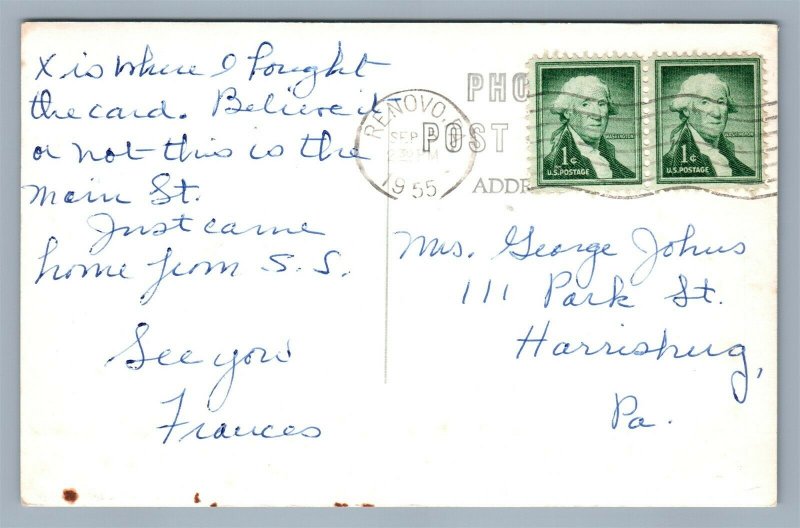 X is where I bought
the card. Believe it
or not this is the
main St.
Just came
home from S. S.
See you
Frances
PHO
POST
ADDR
RENOVO, PA.
SEP
2 30 PM
1955
WASHINGTON
1¢
U.S. POSTAGE
WASHINGTON
1¢
U.S. POSTAGE
Mrs. George Johns
111 Park St.
Harrisburg,
Pa.